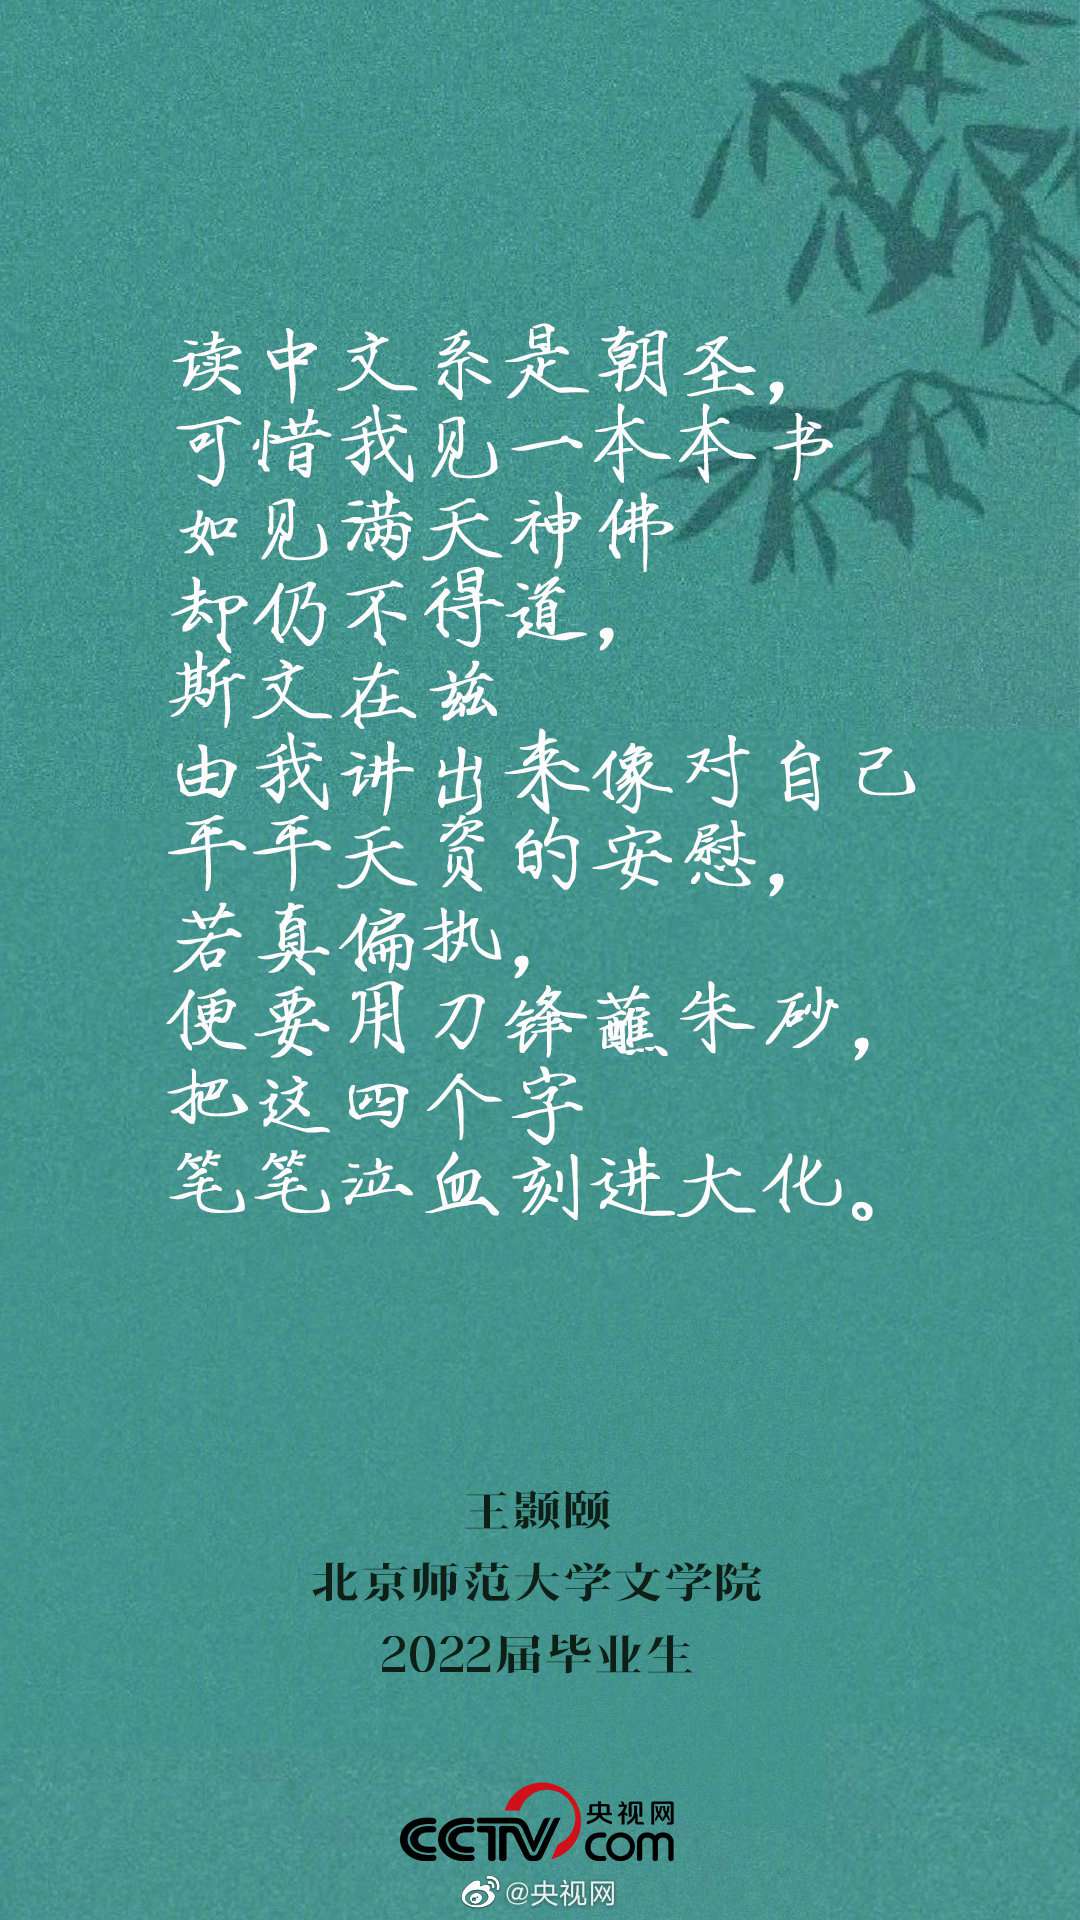 读中文系是朝圣，
可惜我见一本本书
如见满天神佛
却仍不得道，
斯文在兹
由我讲出来像对自己
平平天资的安慰，
若真偏执，
便要用刀锋蘸朱砂，
把这四个字
笔笔泣血刻进大化。
王颢颐
北京师范大学文学院
2022届毕业生
CCTV央视网
com
@央视网